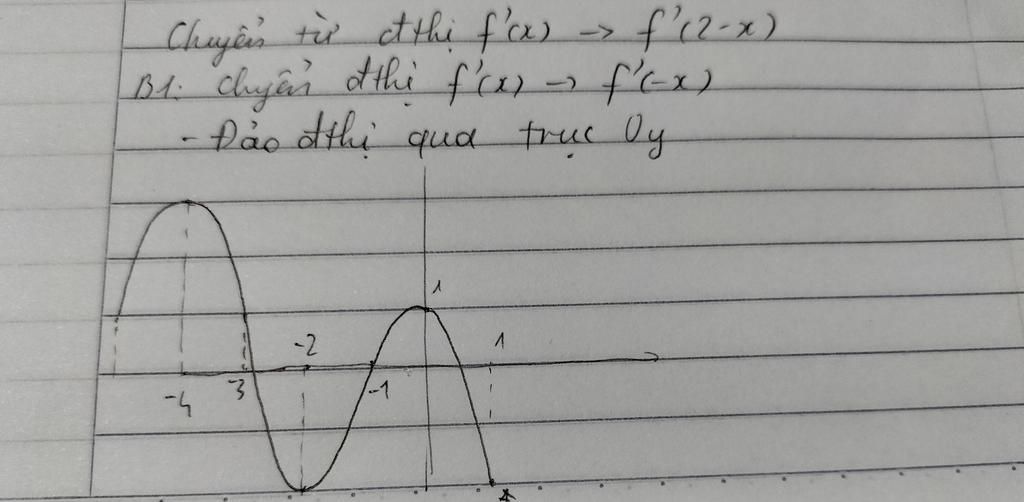 Chuyển từ đthị f'(x) → f'(2-x)
B1: Chuyển đthị f'(x) → f'(-x)
- Đảo đthị qua trục Oy
1
-2
1
-4
-3
-1